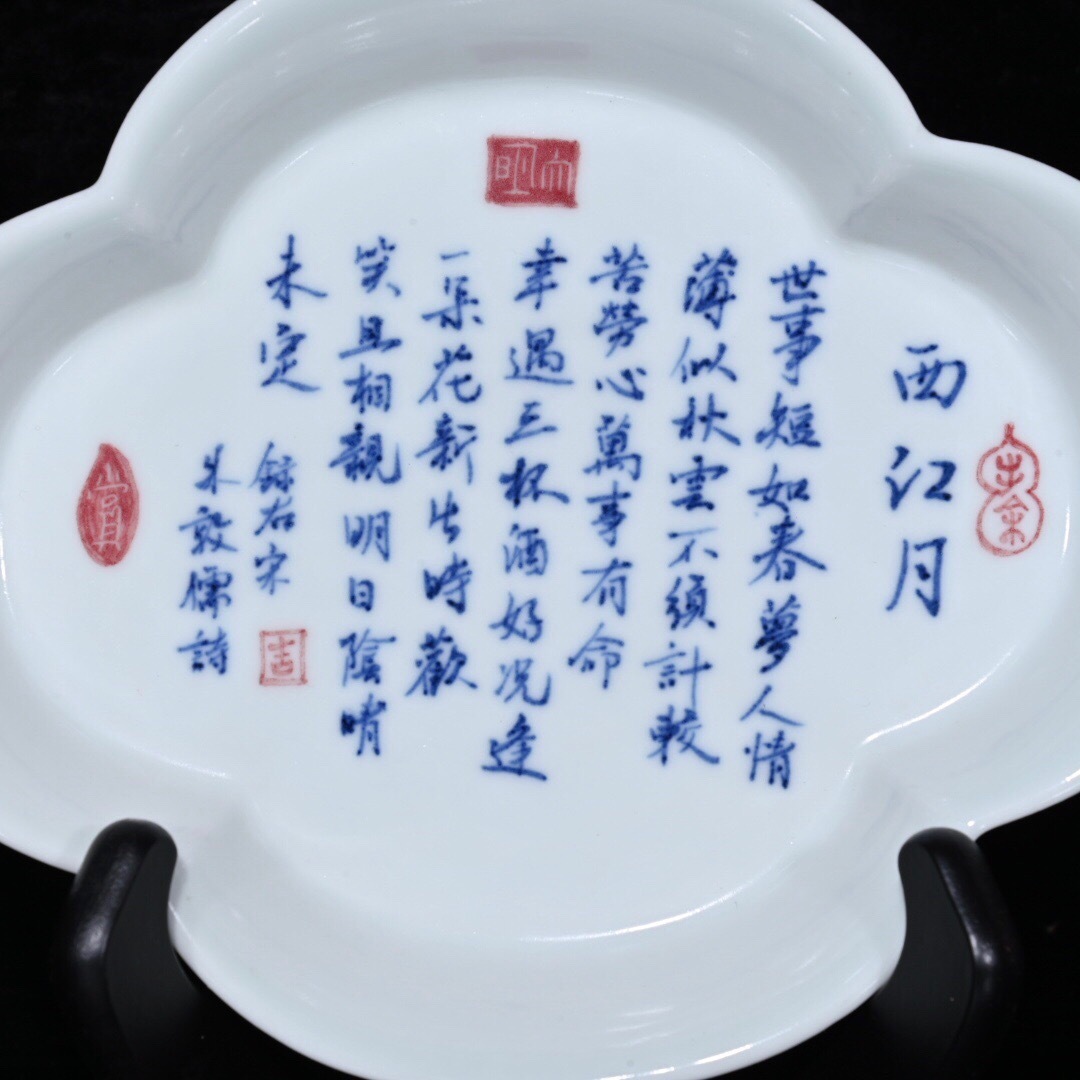 西江月
世事短如春夢人情
薄似秋雲不須計較
苦勞心萬事有命
幸遇三杯酒好況逢
一朵花新片時歡
笑且相親明日陰晴
未定
錄右宋
朱敦儒詩
吉